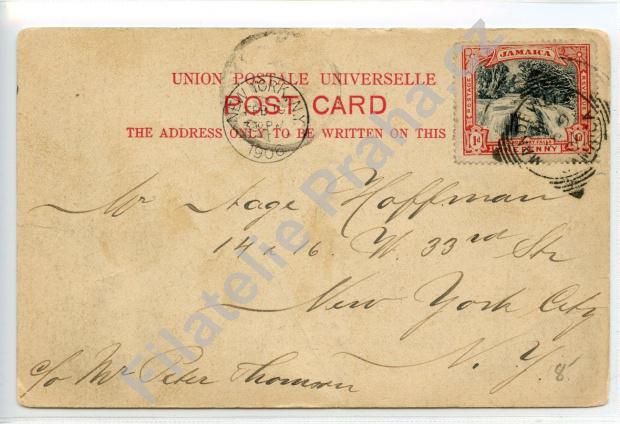 UNION POSTALE UNIVERSELLE
POST CARD
THE ADDRESS ONLY TO BE WRITTEN ON THIS
JAMAICA
POSTAGE
1d
1d
PENNY
NEW YORK, N.Y.
1906
Mr Aage Hoffman
14 & 16 W. 33rd Str
New York City
N. Y.
c/o Mr Peter Thomsen
8
Filatelie Praha.cz